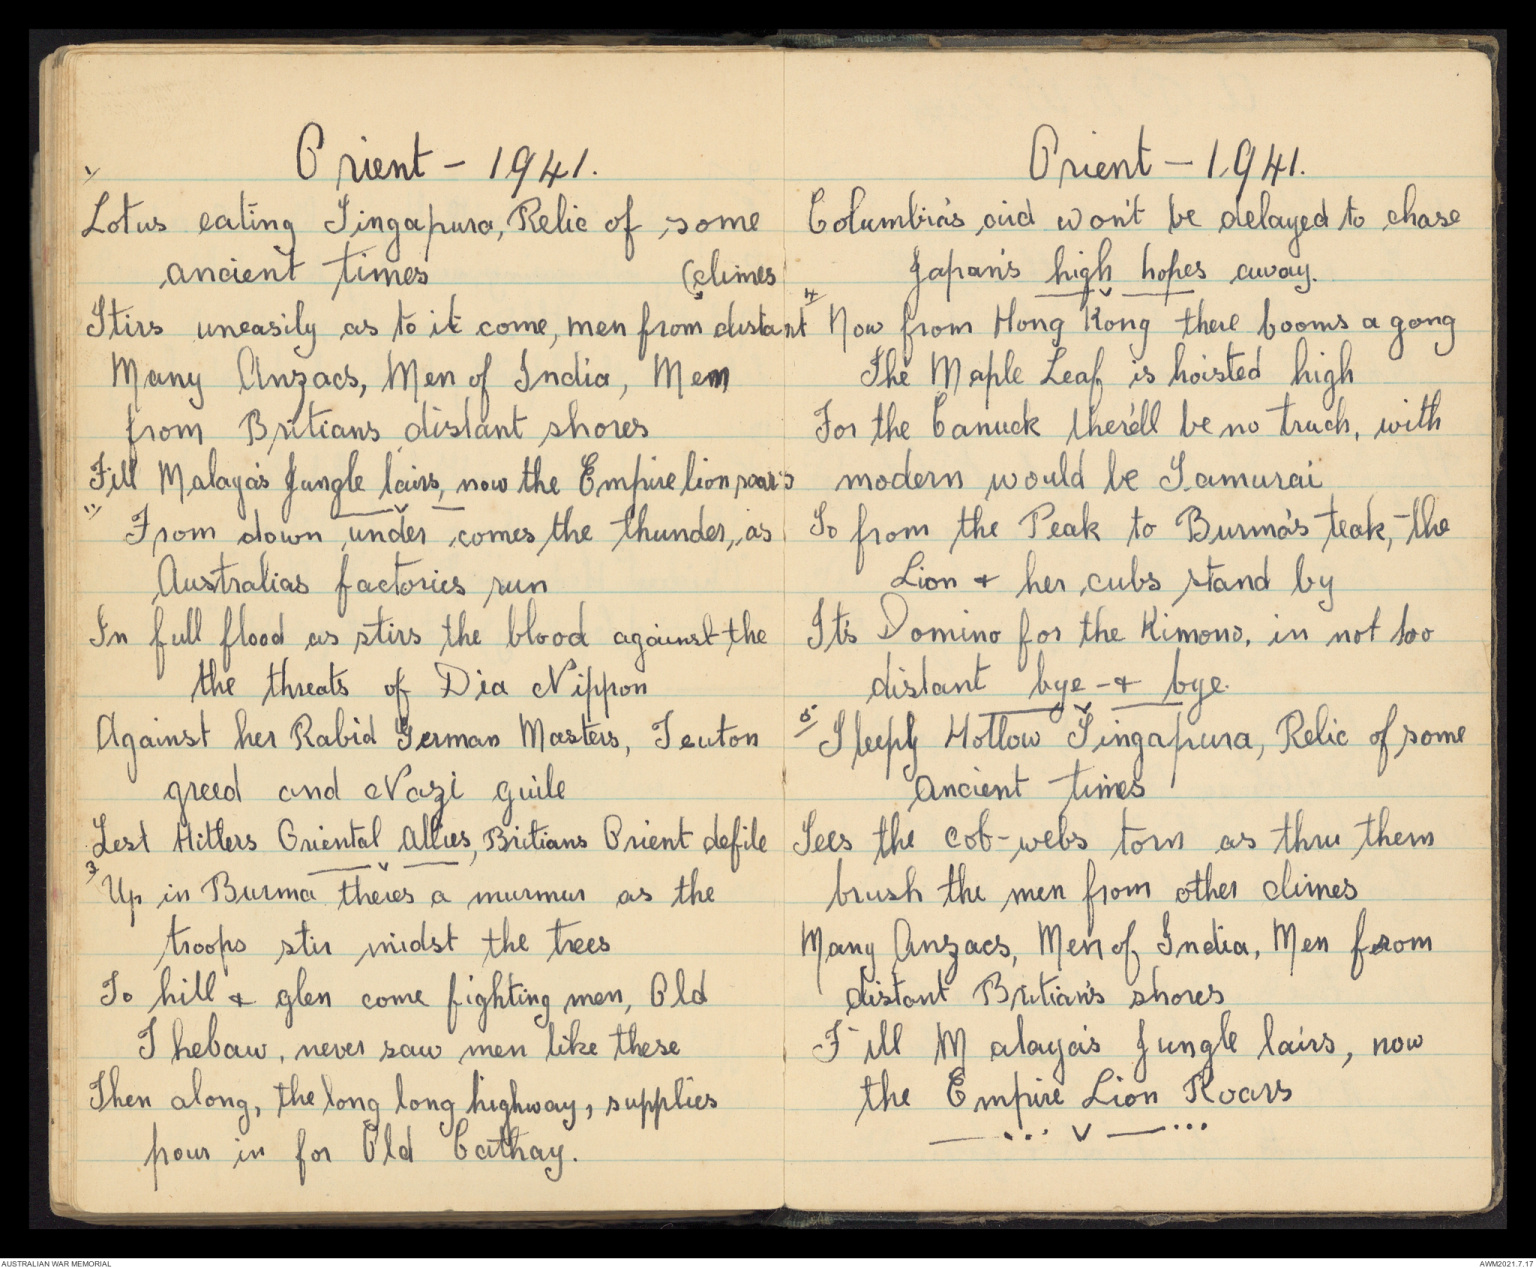 Orient - 1941.
1/
Lotus eating Singapura, Relic of some
ancient times
(climes
Stirs uneasily as to it come, men from distant
Many Anzacs, Men of India, Men
from Britians distant shores
Fill Malaya's Jungle lairs, now the Empire lion roars
11/
From down under comes the thunder, as
Australias factories run
In full flood as stirs the blood against the
the threats of Dia Nippon
Against her Rabid German Masters, Teuton
greed and Nazi guile
Lest Hitlers Oriental Allies, Britians Orient defile
3/
Up in Burma there's a murmur as the
troops stir midst the trees
To hill & glen come fighting men, Old
Thebaw, never saw men like these
Then along, the long long highway, supplies
pour in for Old Cathay.
Orient - 1941.
Columbia's aid won't be delayed to chase
Japan's high hopes away.
4/
Now from Hong Kong there booms a gong
The Maple Leaf is hoisted high
For the Canuck there'll be no truck, with
modern would be Samurai
So from the Peak to Burma's teak, the
Lion & her cubs stand by
It's Domino for the Kimono, in not too
distant bye - & bye.
5/
Sleepy Hollow Singapura, Relic of some
ancient times
Sees the cob-webs torn as thru them
brush the men from other climes
Many Anzacs, Men of India, Men from
distant Britian's shores
Fill Malaya's Jungle lairs, now
the Empire Lion Roars
AUSTRALIAN WAR MEMORIAL
AWM2021.7.17